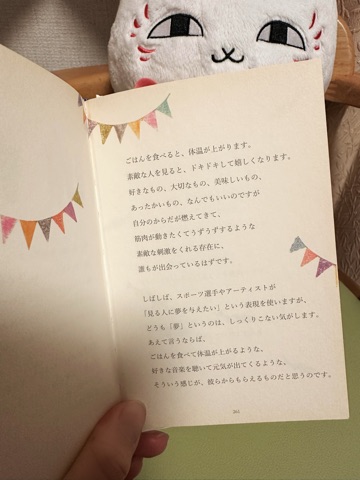 ごはんを食べると、体温が上がります。
素敵な人を見ると、ドキドキして嬉しくなります。
好きなもの、大切なもの、美味しいもの、
あったかいもの、なんでもいいのですが
自分のからだが燃えてきて、
筋肉が動きたくてうずうずするような
素敵な刺激をくれる存在に、
誰もが出会っているはずです。
しばしば、スポーツ選手やアーティストが
「見る人に夢を与えたい」という表現を使いますが、
どうも「夢」というのは、しっくりこない気がします。
あえて言うならば、
ごはんを食べて体温が上がるような、
好きな音楽を聴いて元気が出てくるような、
そういう感じが、彼らからもらえるものだと思うのです。